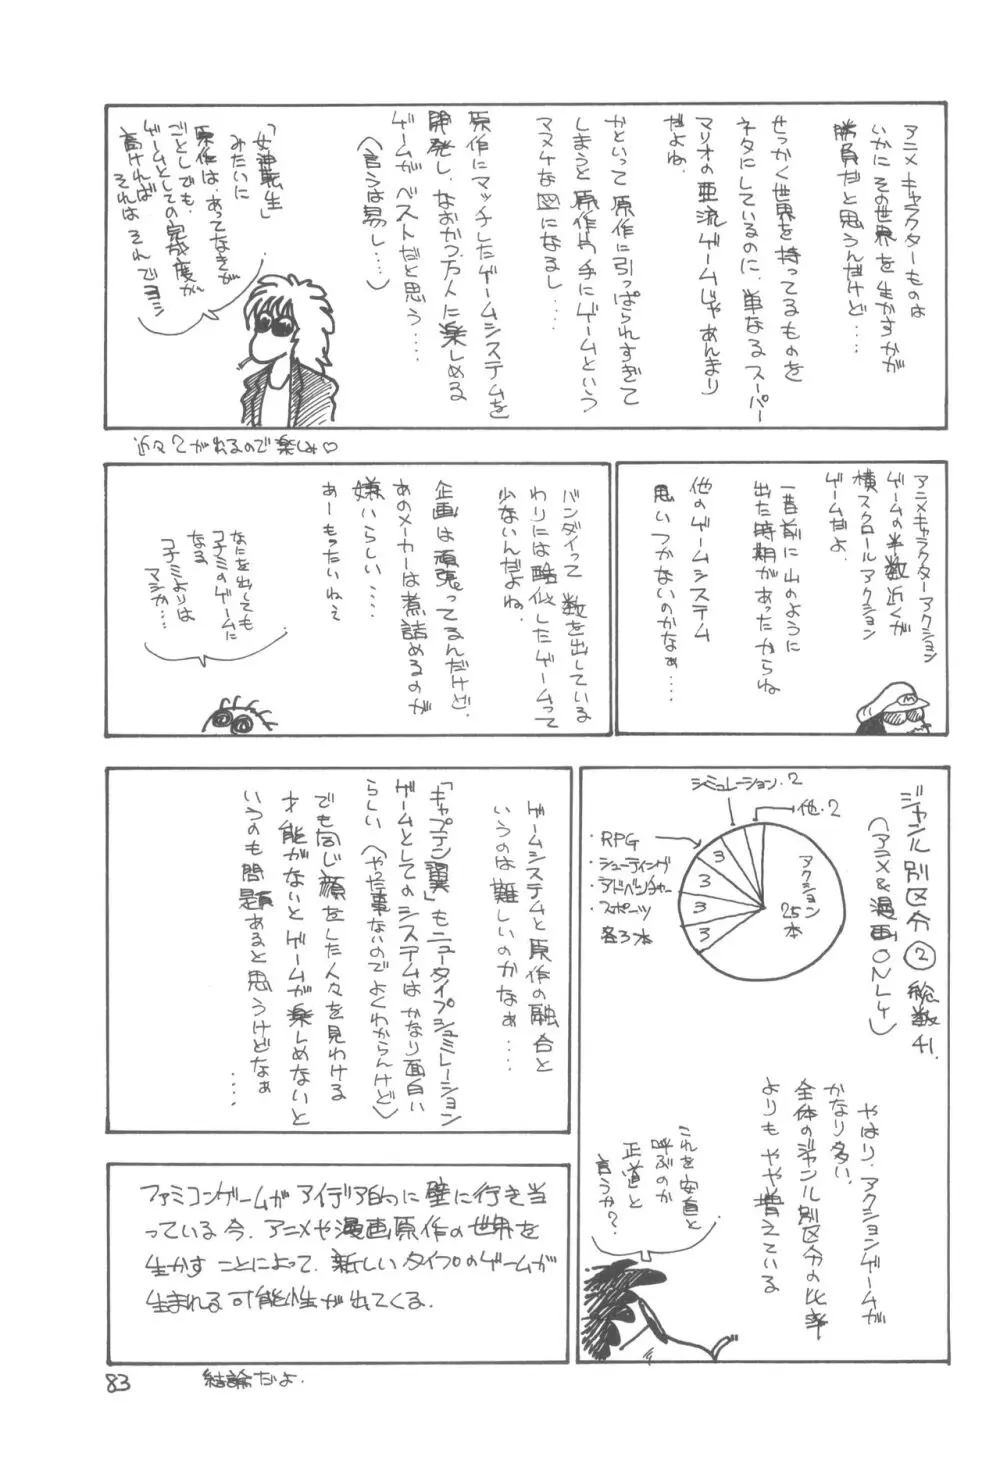 アニメキャラクターものは
いかにその世界を生かすかが
勝負だと思うんだけど‥‥
せっかく世界を持ってるものを
ネタにしているのに、単なるスーパー
マリオの亜流ゲームじゃあんまり
だよね。
かといって原作に引っぱられすぎて
しまうと原作やる手にゲームという
マヌケな図になるし‥‥
原作にマッチしたゲームシステムを
開発し、なおかつ万人に楽しめる
ゲームがベストだと思う‥‥
(言うは易し‥‥)
「女神転生」
みたいに
原作は、あってなきが
ごとしでも、
ゲームとしての完成度が
高ければ
それは それでヨシ
近々2が出るので楽しみ♡
アニメキャラクターアクション
ゲームの半数近くが
横スクロールアクション
ゲームだよ。
一昔前に山のように
出た時期があったからね
他のゲームシステム
思いつかないのかなぁ‥‥
M
バンダイって数を出している
わりには酷似したゲームって
少ないんだよね。
企画は頑張ってるんだけど、
あのメーカーは煮詰めるのが
嫌いらしい‥‥
あーもったいねえ
なにを出しても
コナミのゲームに
なる
コナミよりは
マシか‥‥
ジャンル別区分② 総数41.
(アニメ&漫画ONLY)
シミュレーション・2
他・2
・RPG
・シューティング
・アドベンチャー
・スポーツ
各3本
3
3
3
3
アクション
25本
やはり、アクションゲームが
かなり多い、
全体のジャンル別区分の比率
よりも やや増えている
これを安直と
呼ぶのか
正道と
言うか?
ゲームシステムと原作の融合と
いうのは難しいのかなぁ‥‥
「キャプテン翼」もニュータイプシュミレーション
ゲームとしてのシステムはかなり面白い
らしい(やった事ないのでよくわからんけど)
でも同じ顔をした人々を見わける
才能がないとゲームが楽しめないと
いうのも問題あると思うけどなぁ
‥‥
ファミコンゲームがアイデア的に壁に行き当
っている今、アニメや漫画原作の世界を
生かすことによって、新しいタイプのゲームが
生まれる可能性が出てくる.
結論だよ.
83